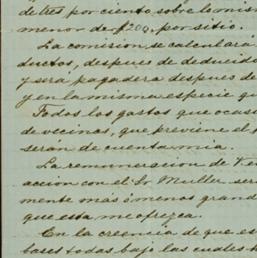 de tres por ciento sobre lo mism
menor de $200. por sitio.
La comision se calculará
ductos, despues de deducid
y será pagadera despues d
y en la misma especie que
Todos los gastos que ocas
de vecinas, que previene el
seran de cuenta mia.
La remuneracion de
accion con el Sr Muller ser
mente mas ó menos grand
que esta me ofrezca.
En la creencia de que es
bases todas bajo las cuales